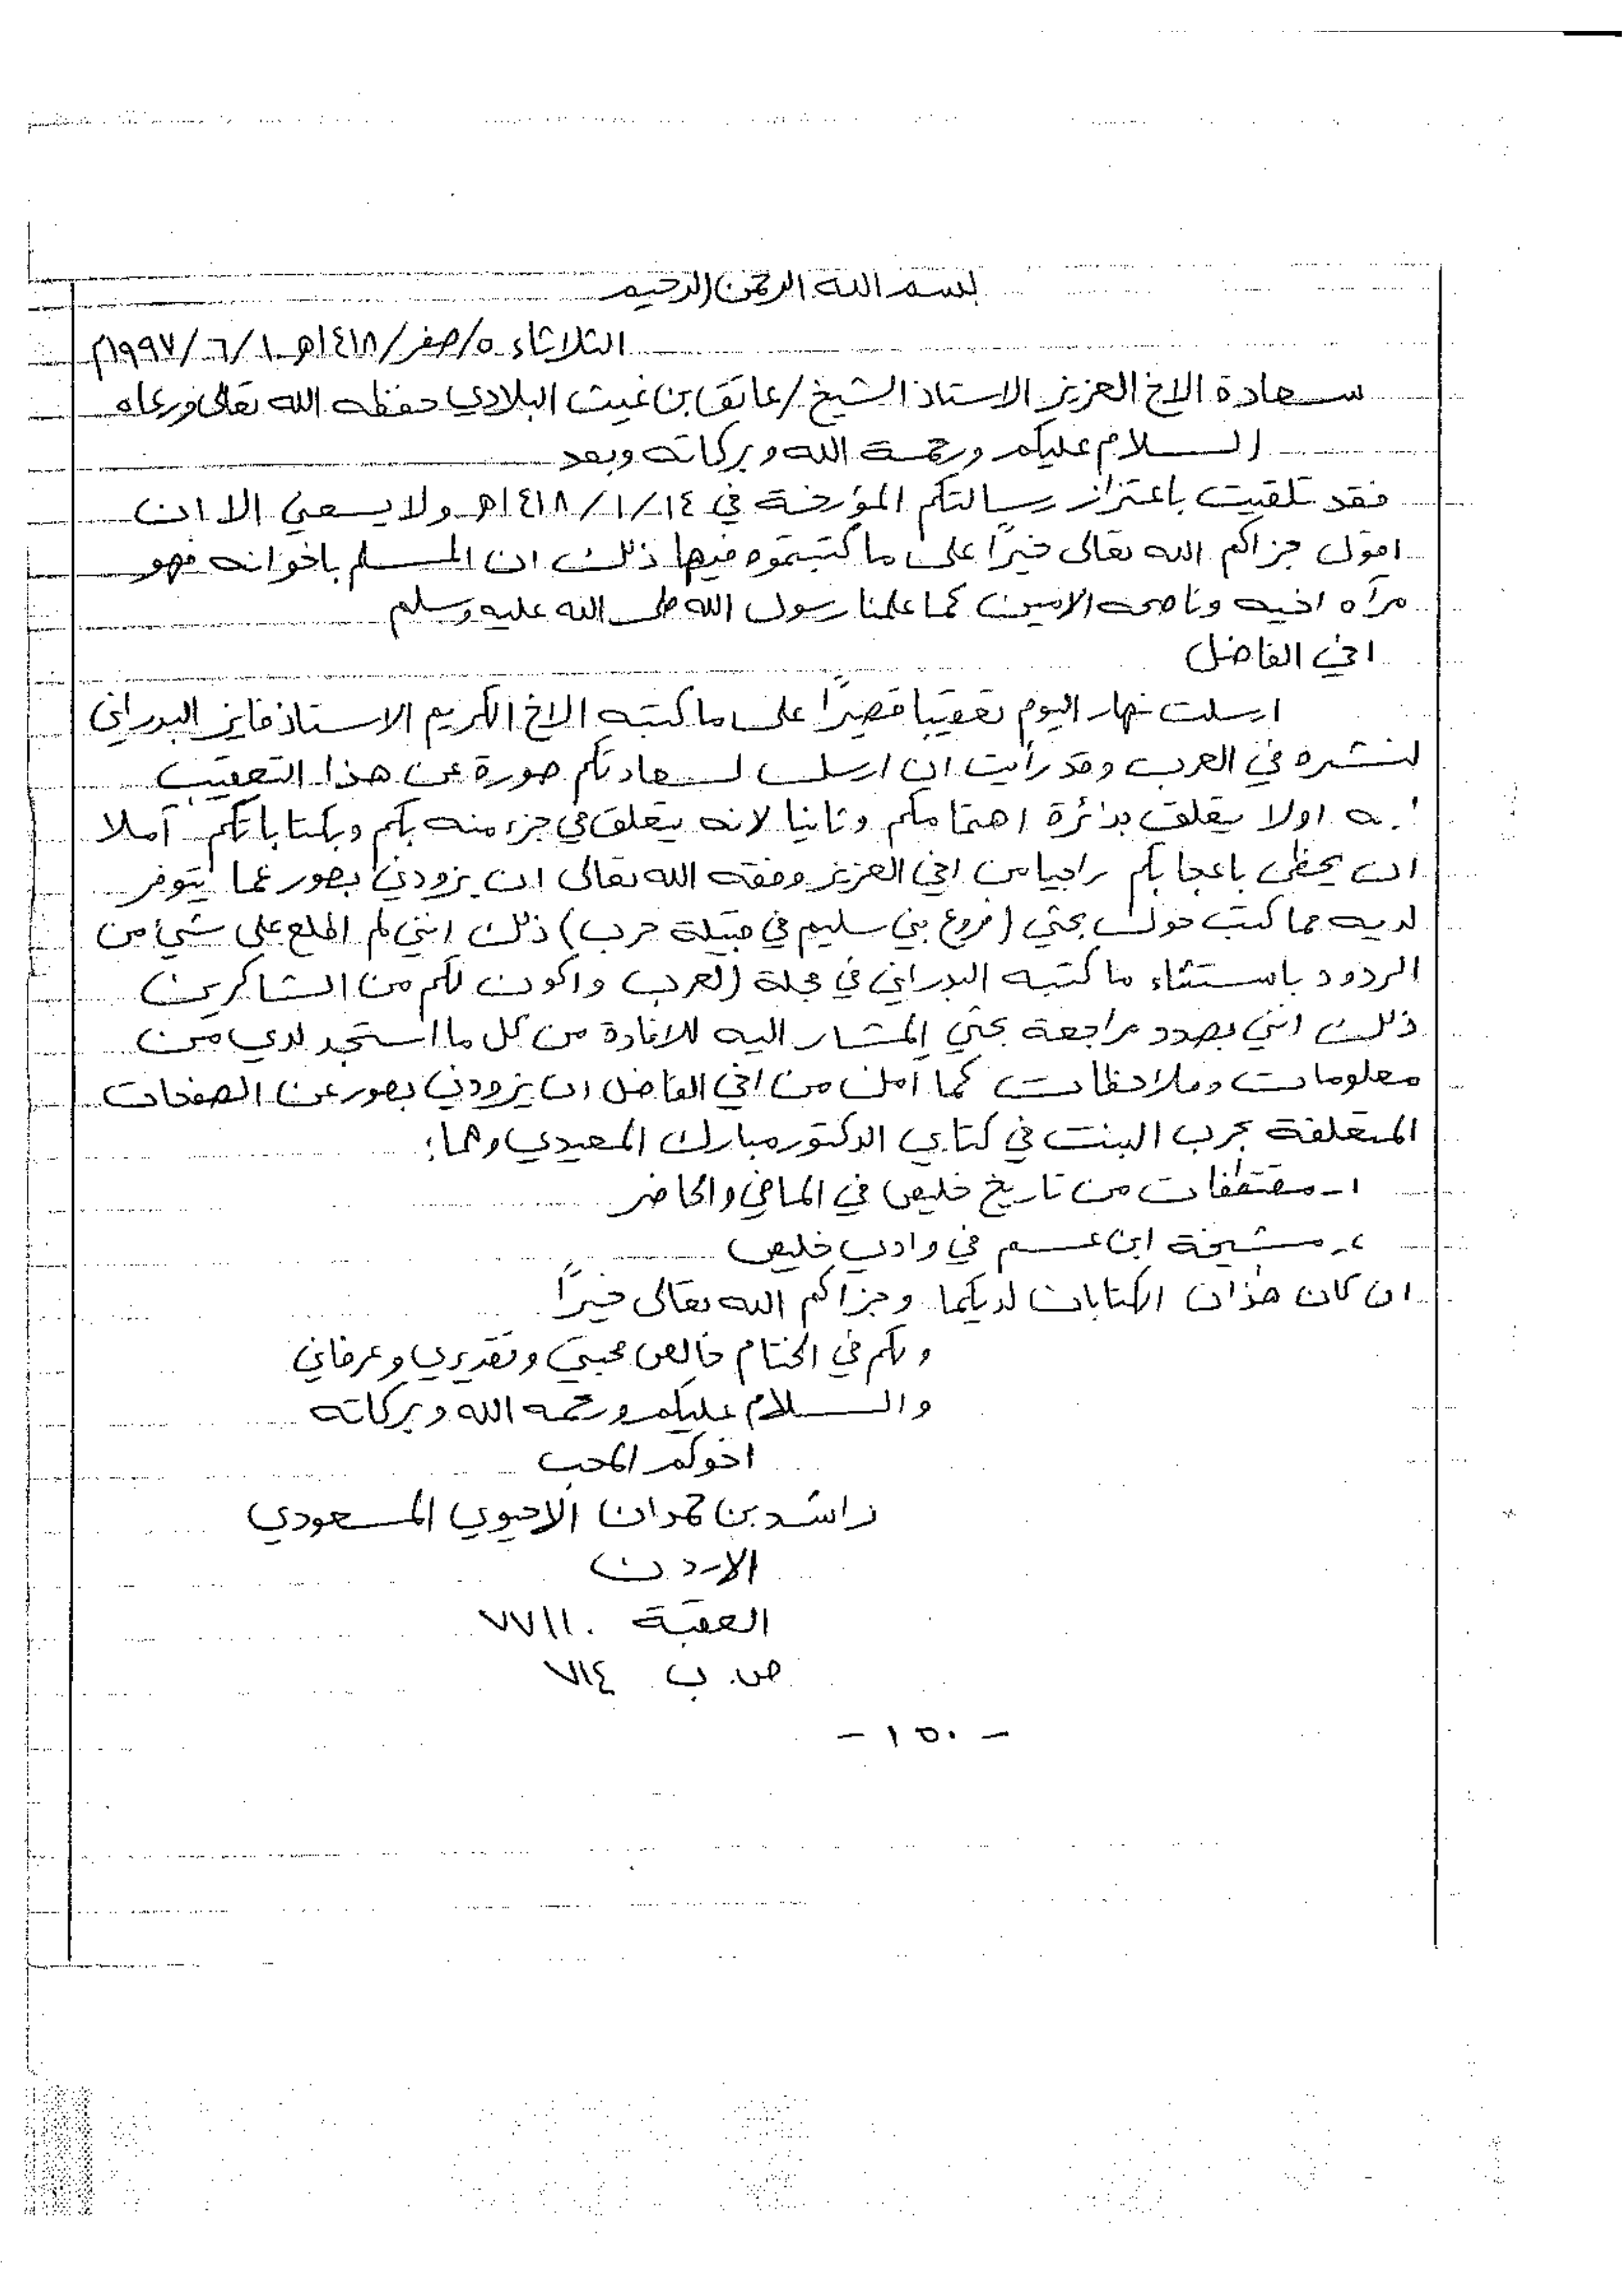 بسم الله الرحمن الرحيم
الثلاثاء ٥/صفر/١٤١٨هـ ١٠/٦/١٩٩٧م
سعادة الاخ العزيز الاستاذ الشيخ/عاتق بن غيث البلادي حفظه الله تعالى ورعاه
السلام عليكم ورحمة الله وبركاته وبعد
فقد تلقيت باعتزاز رسالتكم المؤرخة في ١٤/١/١٤١٨هـ ولا يسعني الا ان
اقول جزاكم الله تعالى خيراً على ما كتبتموه فيها ذلك ان المسلم باخوانه فهو
مرآه اخيه وناصحه الامين كما علمنا رسول الله صلى الله عليه وسلم
اخي الفاضل
ارسلت نهار اليوم تعقيبا قصيراً على ما كتبه الاخ الكريم الاستاذ فايز البدراني
لنشره في العرب وقد رأيت ان ارسل لسعادتكم صورة عن هذا التعقيب
اولا يتعلق بدائرة اهتمامكم وثانيا لانه يتعلق في جزء منه بكم وبكتاباتكم آملا
ان يحظى باعجابكم راجيا من اخي العزيز وفقه الله تعالى ان يزودني بصور عما يتوفر
لديه مما كتب حول بحثي (فروع بني سليم في قبيلة حرب) ذلك انني لم اطلع على شيء من
الردود باستثناء ما كتبه البدراني في مجلة العرب واكون لكم من الشاكرين
ذلك انني بصدد مراجعة بحثي المشار اليه للافادة من كل ما استجد لدي من
معلومات وملاحظات كما آمل من اخي الفاضل ان يزودني بصور عن الصفحات
المتعلقة بحرب البنت في كتابي الدكتور مبارك المعبدي وهما:
١- مقتطفات من تاريخ خليص في الماضي والحاضر
٢- مشيخة ابن عسم في وادي خليص
ان كان هذان الكتابان لديكما وجزاكم الله تعالى خيراً
ولكم في الختام خالص محبتي وتقديري وعرفاني
والسلام عليكم ورحمه الله وبركاته
اخوكم المحب
راشد بن حمدان الاحيوي المسعودي
الاردن
العقبة ٧٧١١٠
ص. ب ٧١٤
- ١٥٠ -